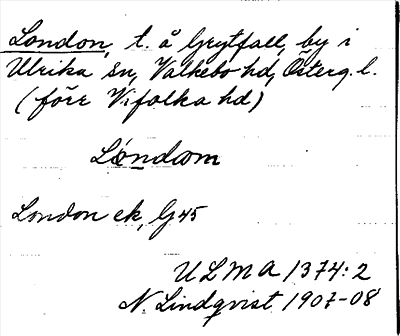 London, t. å Grytfall, by i
Ulrika sn, Valkebo hd, Österg. l.
(före Vifolka hd)
Londom
London ek, G 45
ULMA 1374:2
N. Lindqvist 1907-08